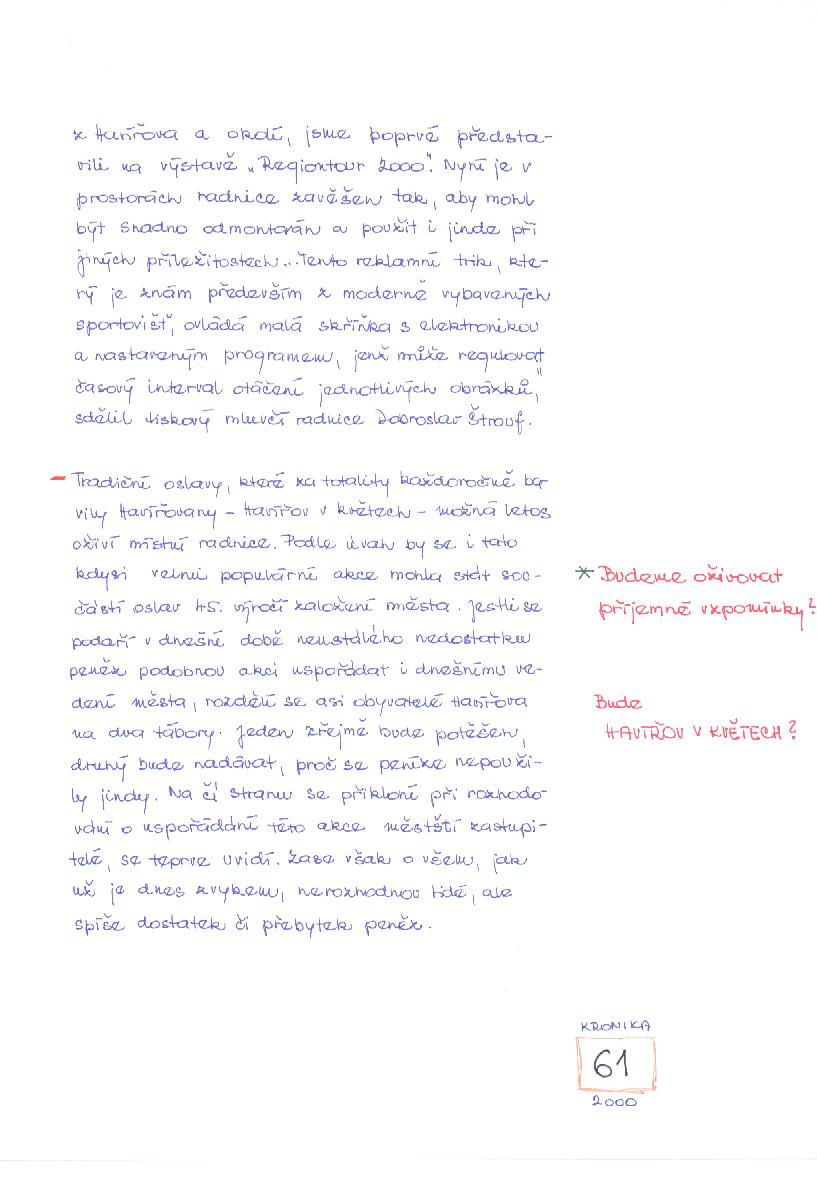 z Havířova a okolí, jsme poprvé předsta-
vili na výstavě "Regiontour 2000". Nyní je v
prostorách radnice zavěšen tak, aby mohl
být snadno odmontován a použit i jinde při
jiných příležitostech... Tento reklamní trik, kte-
rý je znám především z moderně vybavených
sportovišť, ovládá malá skříňka s elektronikou
a nastaveným programem, jenž může regulovat
časový interval otáčení jednotlivých obrázků,"
sdělil tiskový mluvčí radnice Dobroslav Štrouf.
- Tradiční oslavy, které za totality každoročně ba-
vily Havířovany - Havířov v květech - možná letos
oživí místní radnice. Podle úvah by se i tato
kdysi velmi populární akce mohla stát sou-
částí oslav 45. výročí založení města. Jestli se
podaří v dnešní době neustálého nedostatku
peněz podobnou akci uspořádat i dnešnímu ve-
dení města, rozdělí se asi obyvatelé Havířova
na dva tábory. Jeden zřejmě bude potěšen,
druhý bude nadávat, proč se peníze nepouži-
ly jindy. Na čí stranu se přikloní při rozhodo-
vání o uspořádání této akce městští zastupi-
telé, se teprve uvidí. Zase však o všem, jak
už je dnes zvykem, nerozhodnou lidé, ale
spíše dostatek či přebytek peněz.
* Budeme oživovat
příjemné vzpomínky?
Bude
HAVÍŘOV V KVĚTECH?
KRONIKA
61
2000